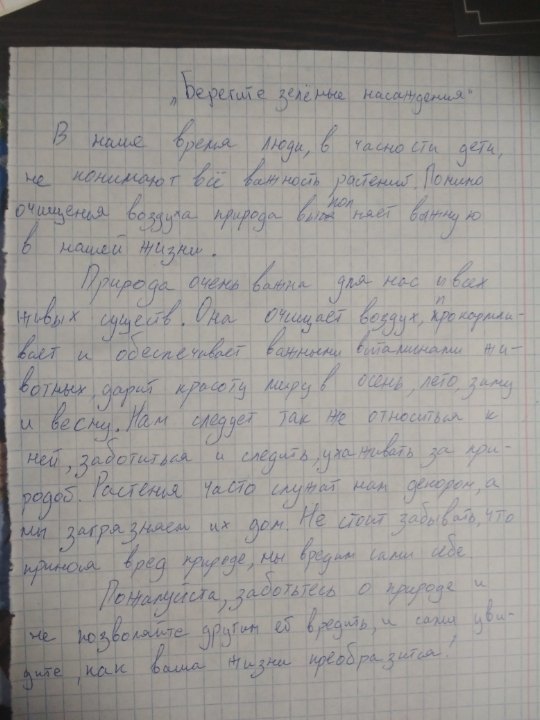 „Берегите зелёные насаждения"
В наше время люди, в часности дети,
не понимают всё важность растений. Помимо
очищения воздуха природа выполняет важную
в нашей жизни.
Природа очень важна для нас и всех
живых существ. Она очищает воздух, прокармли-
вает и обеспечивает важными витаминами жи-
вотных, дарит красоту миру в осень, лето, зиму
и весну. Нам следует так же относиться к
ней, заботиться и следить, ухаживать за при-
родой. Растенья часто служат нам декором, а
мы загрязняем их дом. Не стоит забывать, что
принося вред природе, мы вредим сами себе
Пожалуйста, заботьтесь о природе и
не позволяйте другим её вредить, и сами уви-
дите, как ваша жизни преобразится!